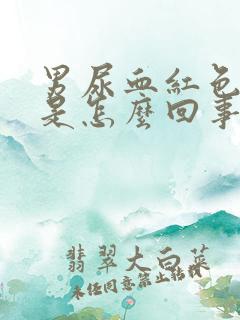 男尿血红色
是怎麼回事
翡翠大白菜
未经同意禁止转载